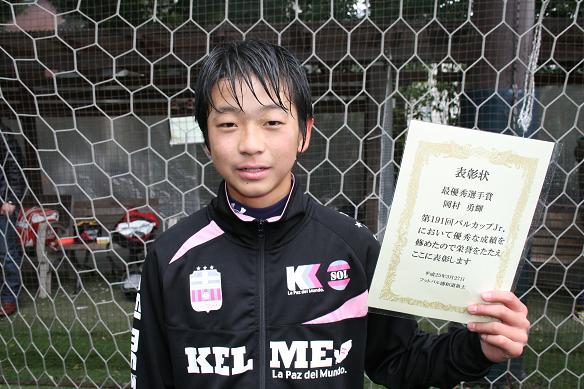 表彰状
最優秀選手賞
岡村 勇輝
第191回バルカップJr.
において優秀な成績を
修めたので栄誉をたたえ
ここに表彰します
平成25年3月27日
KK SOL
La Paz del Mundo.
KEL ME
La Paz del Mundo.